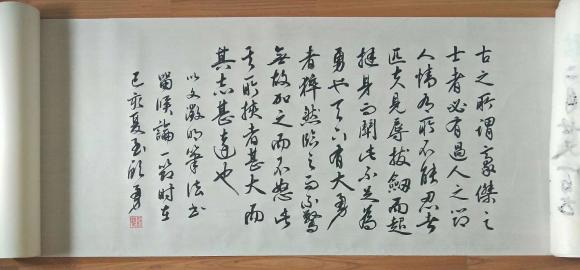 古之所謂豪傑之
士者必有過人之節
人情有所不能忍者
匹夫見辱拔劍而起
挺身而鬥此不足為
勇也天下有大勇
者猝然臨之而不驚
無故加之而不怒此
其所挾者甚大而
其志甚遠也
以文徵明筆法書
留侯論一節時在
己亥夏